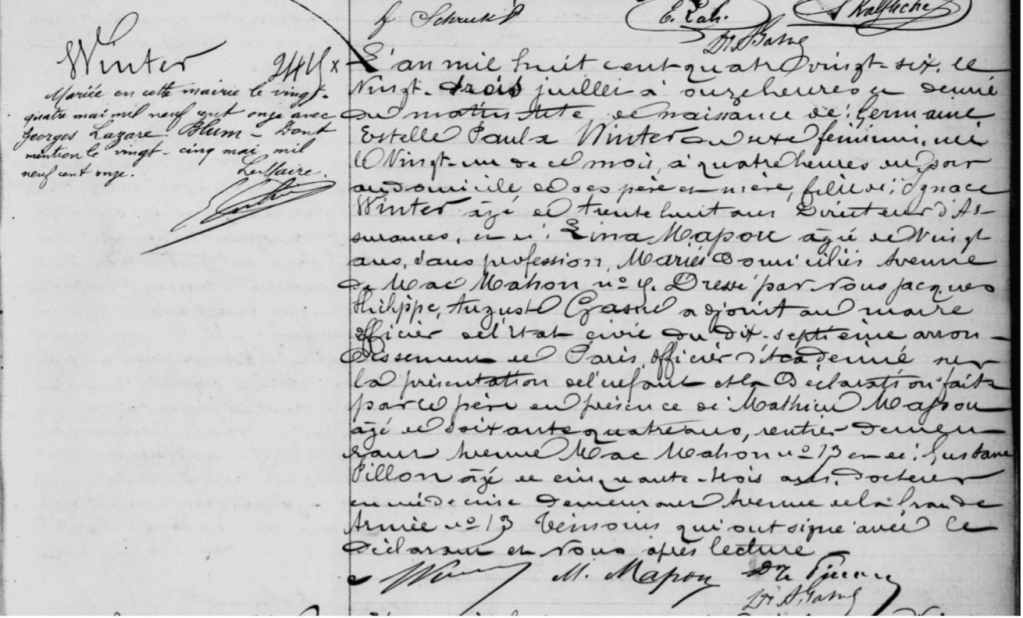 Winter
2445
Mariée en cette mairie le vingt-
quatre mai mil neuf cent onze avec
Georges Lazare Blum. Dont
mention le vingt-cinq mai mil
neuf cent onze.
Le Maire.
L'an mil huit cent quatre vingt-six, le
Vingt-trois juillet à onze heures et demie
du matin. Acte de naissance de: Germaine
Estelle Paula Winter du sexe féminin, née
le Vingt-un de ce mois, à quatre heures du soir
au domicile de ses père et mère, fille de: Ignace
Winter âgé de trente huit ans Directeur d'As-
surances, et de: Lina Mapou âgée de Vingt
ans, sans profession, Mariés Domiciliés Avenue
de Mac Mahon no 4. Dressé par Nous Jacques
Philippe, Auguste Gasné adjoint au maire
officier de l'état civil du dix-septième arron-
dissement de Paris, officier d'académie sur
la présentation de l'enfant et la Déclaration faite
par le père en présence de Mathieu Mapou
âgé de soixante quatre ans, rentier demeu-
rant Avenue Mac Mahon no 13 et de: Gustave
Pillon âgé de cinquante-trois ans, docteur
en médecine demeurant Avenue de la Grande
Armée no 13 Témoins qui ont signé avec le
déclarant et Nous après lecture
M. Mapou